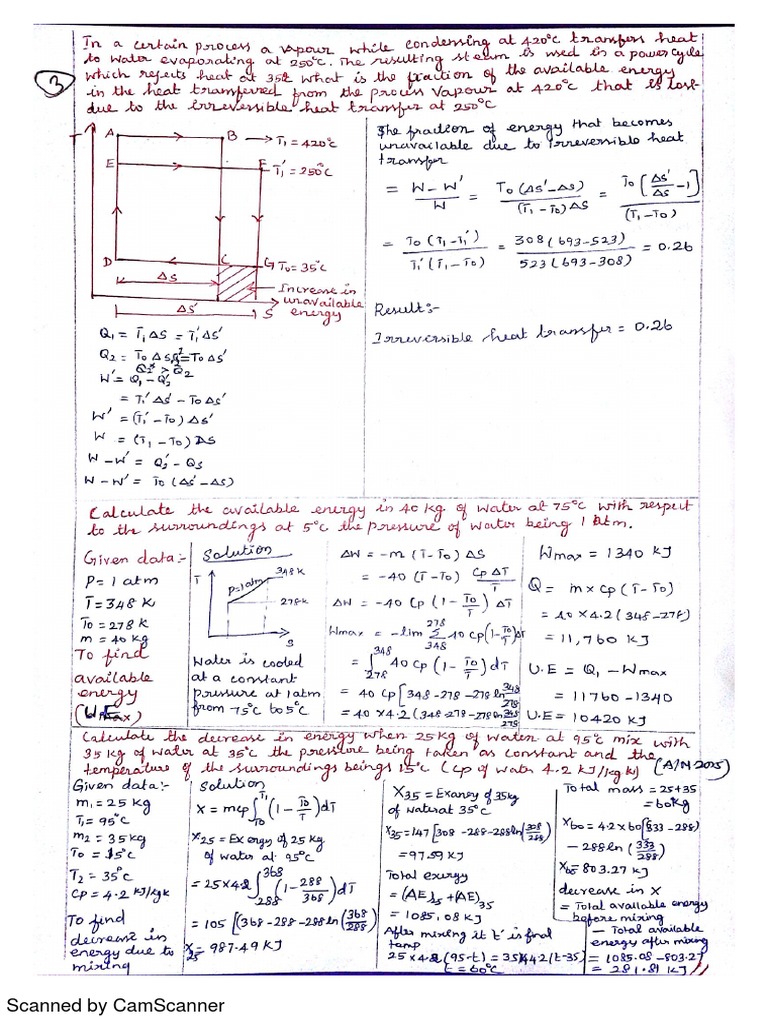 In a certain process a vapour while condensing at 420°C transfers heat
to water evaporating at 250°C. The resulting steam is used in a power cycle
which rejects heat at 35°C what is the fraction of the available energy
in the heat transferred from the process vapour at 420°C that is lost
due to the irreversible heat transfer at 250°C
3
T
A
B
T₁ = 420°C
E
F
T₁' = 250°C
D
C
G
T₀ = 35°C
ΔS
Increase in
unavailable
energy
ΔS'
S
Q₁ = T₁ΔS = T₁'ΔS'
W' = Q₁ - Q₂'
= T₁'ΔS' - T₀ΔS'
W' = (T₁' - T₀) ΔS'
W = (T₁ - T₀) ΔS
W - W' = Q₂' - Q₂
W - W' = T₀ (ΔS' - ΔS)
The fraction of energy that becomes
unavailable due to irreversible heat
transfer
= W - W' / W = T₀ (ΔS' - ΔS) / (T₁ - T₀) ΔS = T₀ [ΔS'/ΔS - 1] / (T₁ - T₀)
= T₀ (T₁ - T₁') / T₁' (T₁ - T₀) = 308 (693 - 523) / 523 (693 - 308) = 0.26
Result:-
Irreversible heat transfer = 0.26
Calculate the available energy in 40 kg of water at 75°C with respect
to the surroundings at 5°C the pressure of water being 1 atm.
Given data:-
P = 1 atm
T = 348 K
T₀ = 278 K
m = 40 kg
To find
available
energy
Solution
T
P=1atm
348K
278K
S
Water is cooled
at a constant
pressure at 1atm
from 75°C to 5°C
ΔW = -m (T - T₀) ΔS
= -40 (T - T₀) CpΔT/T
ΔW = -40 Cp (1 - T₀/T) ΔT
Wmax = -lim Σ 40 Cp (1 - T₀/T) ΔT
278
348
= ∫ 40 Cp (1 - T₀/T) dT
348
278
= 40 Cp [348 - 278 - 278 ln 348/278
= 40 × 4.2 (348 - 278 - 278 ln 348/278
Wmax = 1340 KJ
Q = m × Cp (T - T₀)
= 40 × 4.2 (348 - 278)
= 11,760 KJ
U.E = Q₁ - Wmax
= 11760 - 1340
U.E = 10420 KJ
Calculate the decrease in energy when 25 kg of water at 95°C mix with
35 kg of water at 35°C the pressure being taken as constant and the
temperature of the surroundings beings 15°C (Cp of water 4.2 KJ/kg k) (A/N 2015)
Given data:-
m₁ = 25 kg
T₁ = 95°C
m₂ = 35 kg
T₀ = 15°C
T₂ = 35°C
Cp = 4.2 KJ/kgk
To find
decrease in
energy due to
mixing
Solution
X = mcp ∫ (1 - T₀/T) dT
T₁
T₀
X₂₅ = Exergy of 25 kg
of water at 95°C
= 25×4.2 ∫ (1 - 288/368) dT
368
288
= 105 [368 - 288 - 288 ln (368/288)
X₂₅ = 987.49 KJ
X₃₅ = Exergy of 35kg
of water at 35°C
X₃₅ = 147 [308 - 288 - 288 ln (308/288)]
= 97.59 KJ
Total exergy
= (AE)₂₅ + (AE)₃₅
= 1085.08 KJ
After mixing it t' is final
temp
25 × 4.2 (95 - t) = 35×4.2 (t - 35)
t = 60°C
Total mass = 25+35
= 60kg
X₆₀ = 4.2×60 [(333 - 288)
- 288 ln (333/288)
X₆₀ = 803.27 KJ
decrease in X
= Total available energy
before mixing
- Total available
energy after mixing
= 1085.08 - 803.27
= 281.81 KJ
Scanned by CamScanner